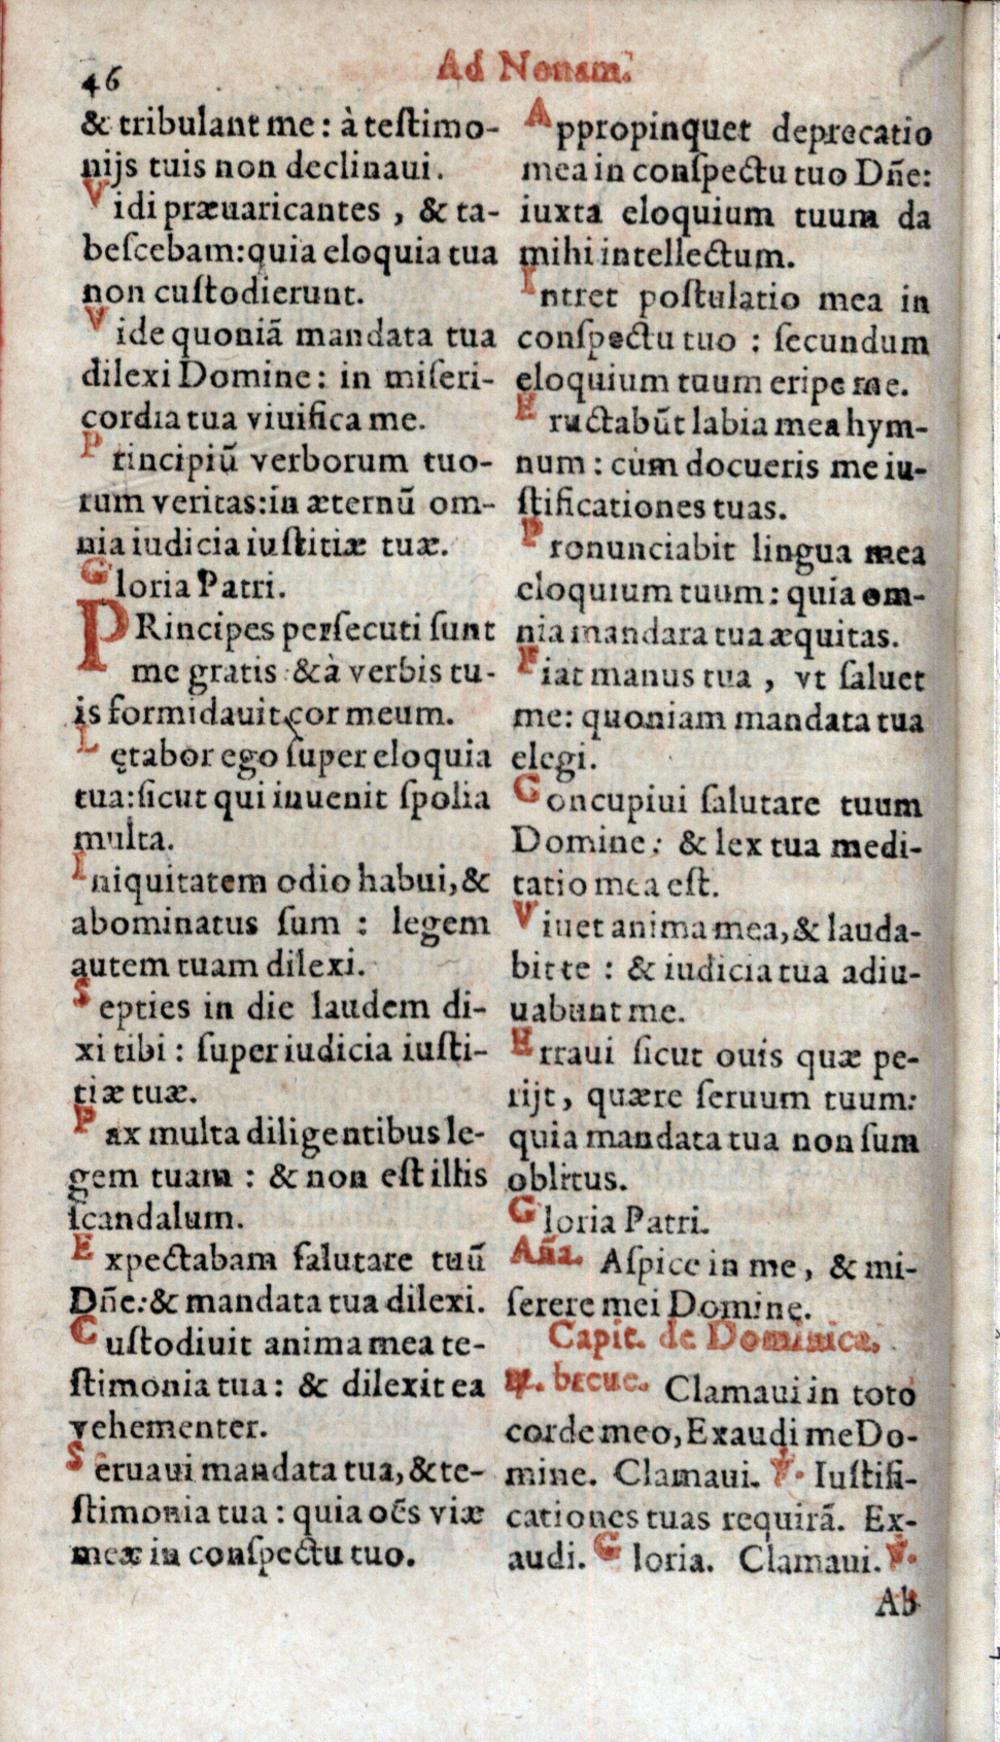 46
Ad Nonam.
& tribulant me: à teſtimo-
nijs tuis non declinaui.
Vidi præuaricantes, & ta-
beſcebam: quia eloquia tua
non cuſtodierunt.
Vide quoniã mandata tua
dilexi Domine: in miſeri-
cordia tua viuifica me.
Principiũ verborum tuo-
rum veritas: in æternũ om-
nia iudicia iuſtitiæ tuæ.
Gloria Patri.
PRincipes perſecuti ſunt
me gratis & à verbis tu-
is formidauit cor meum.
Lętabor ego ſuper eloquia
tua: ſicut qui inuenit ſpolia
multa.
Iniquitatem odio habui, &
abominatus ſum : legem
autem tuam dilexi.
Septies in die laudem di-
xi tibi : ſuper iudicia iuſti-
tiæ tuæ.
Pax multa diligentibus le-
gem tuam : & non eſt illis
ſcandalum.
Expectabam ſalutare tuũ
Dñe: & mandata tua dilexi.
Cuſtodiuit anima mea te-
ſtimonia tua: & dilexit ea
vehementer.
Seruaui mandata tua, & te-
ſtimonia tua : quia oẽs viæ
meæ in conſpectu tuo.
Appropinquet deprecatio
mea in conſpectu tuo Dñe:
iuxta eloquium tuum da
mihi intellectum.
Intret poſtulatio mea in
conſpectu tuo : ſecundum
eloquium tuum eripe me.
Eructabũt labia mea hym-
num : cùm docueris me iu-
ſtificationes tuas.
Pronunciabit lingua mea
eloquium tuum: quia om-
nia mandara tua æquitas.
Fiat manus tua, vt ſaluet
me: quoniam mandata tua
elegi.
Concupiui ſalutare tuum
Domine: & lex tua medi-
tatio mea eſt.
Viuet anima mea, & lauda-
bit te : & iudicia tua adiu-
uabunt me.
Erraui ſicut ouis quæ pe-
rijt, quære ſeruum tuum:
quia mandata tua non ſum
oblitus.
Gloria Patri.
Aña. Aſpice in me, & mi-
ſerere mei Domine.
Capit. de Dominica.
℟. breue. Clamaui in toto
corde meo, Exaudi me Do-
mine. Clamaui. ℣. Iuſtifi-
cationes tuas requirã. Ex-
audi. Gloria. Clamaui. ℣.
Ab